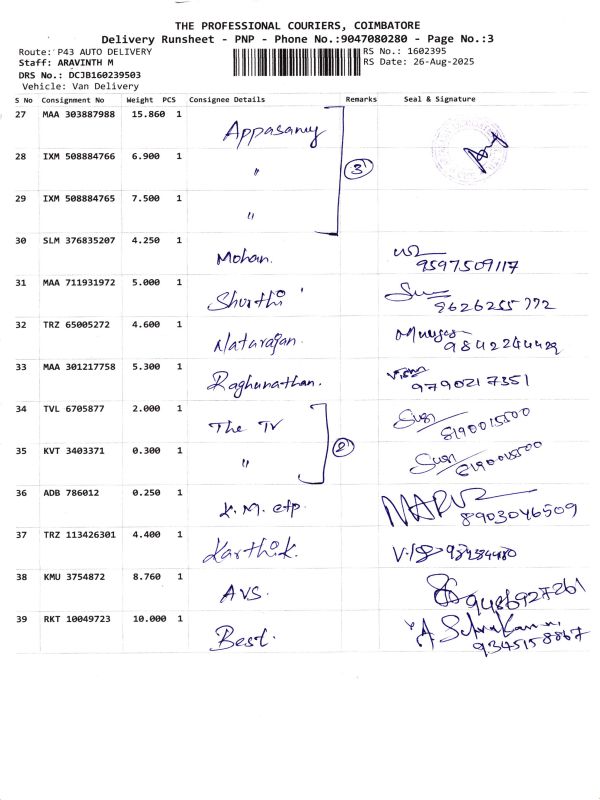 THE PROFESSIONAL COURIERS, COIMBATORE
Delivery Runsheet - PNP - Phone No.:9047080280 - Page No.:3
Route: P43 AUTO DELIVERY RS No.: 1602395
Staff: ARAVINTH M RS Date: 26-Aug-2025
DRS No.: DCJB160239503
Vehicle: Van Delivery
S No Consignment No Weight PCS Consignee Details Remarks Seal & Signature
27 MAA 303887988 15.860 1 Appasamy
28 IXM 508884766 6.900 1 " 3
29 IXM 508884765 7.500 1 "
30 SLM 376835207 4.250 1 Mohan. 9597509117
31 MAA 711931972 5.000 1 Shurthi 9626255772
32 TRZ 65005272 4.600 1 Natarajan. 9842244429
33 MAA 301217758 5.300 1 Raghunathan. 9790217351
34 TVL 6705877 2.000 1 The TV 8190015500
35 KVT 3403371 0.300 1 " 2 8190015500
36 ADB 786012 0.250 1 K.M. etp. 8903046509
37 TRZ 113426301 4.400 1 Karthik.
38 KMU 3754872 8.760 1 AVS. 9486927261
39 RKT 10049723 10.000 1 Best. 9345158867